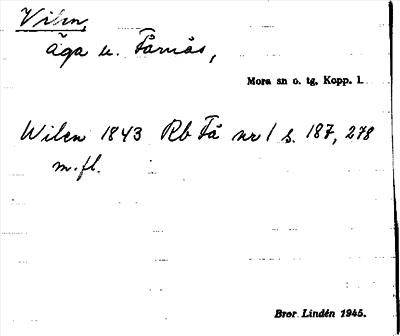 Vilen,
äga u. Fårnås,
Mora sn o. tg, Kopp. l.
Wilen 1843 Rb Få nr 1 s. 187, 278
m.fl.
Bror Lindén 1945.